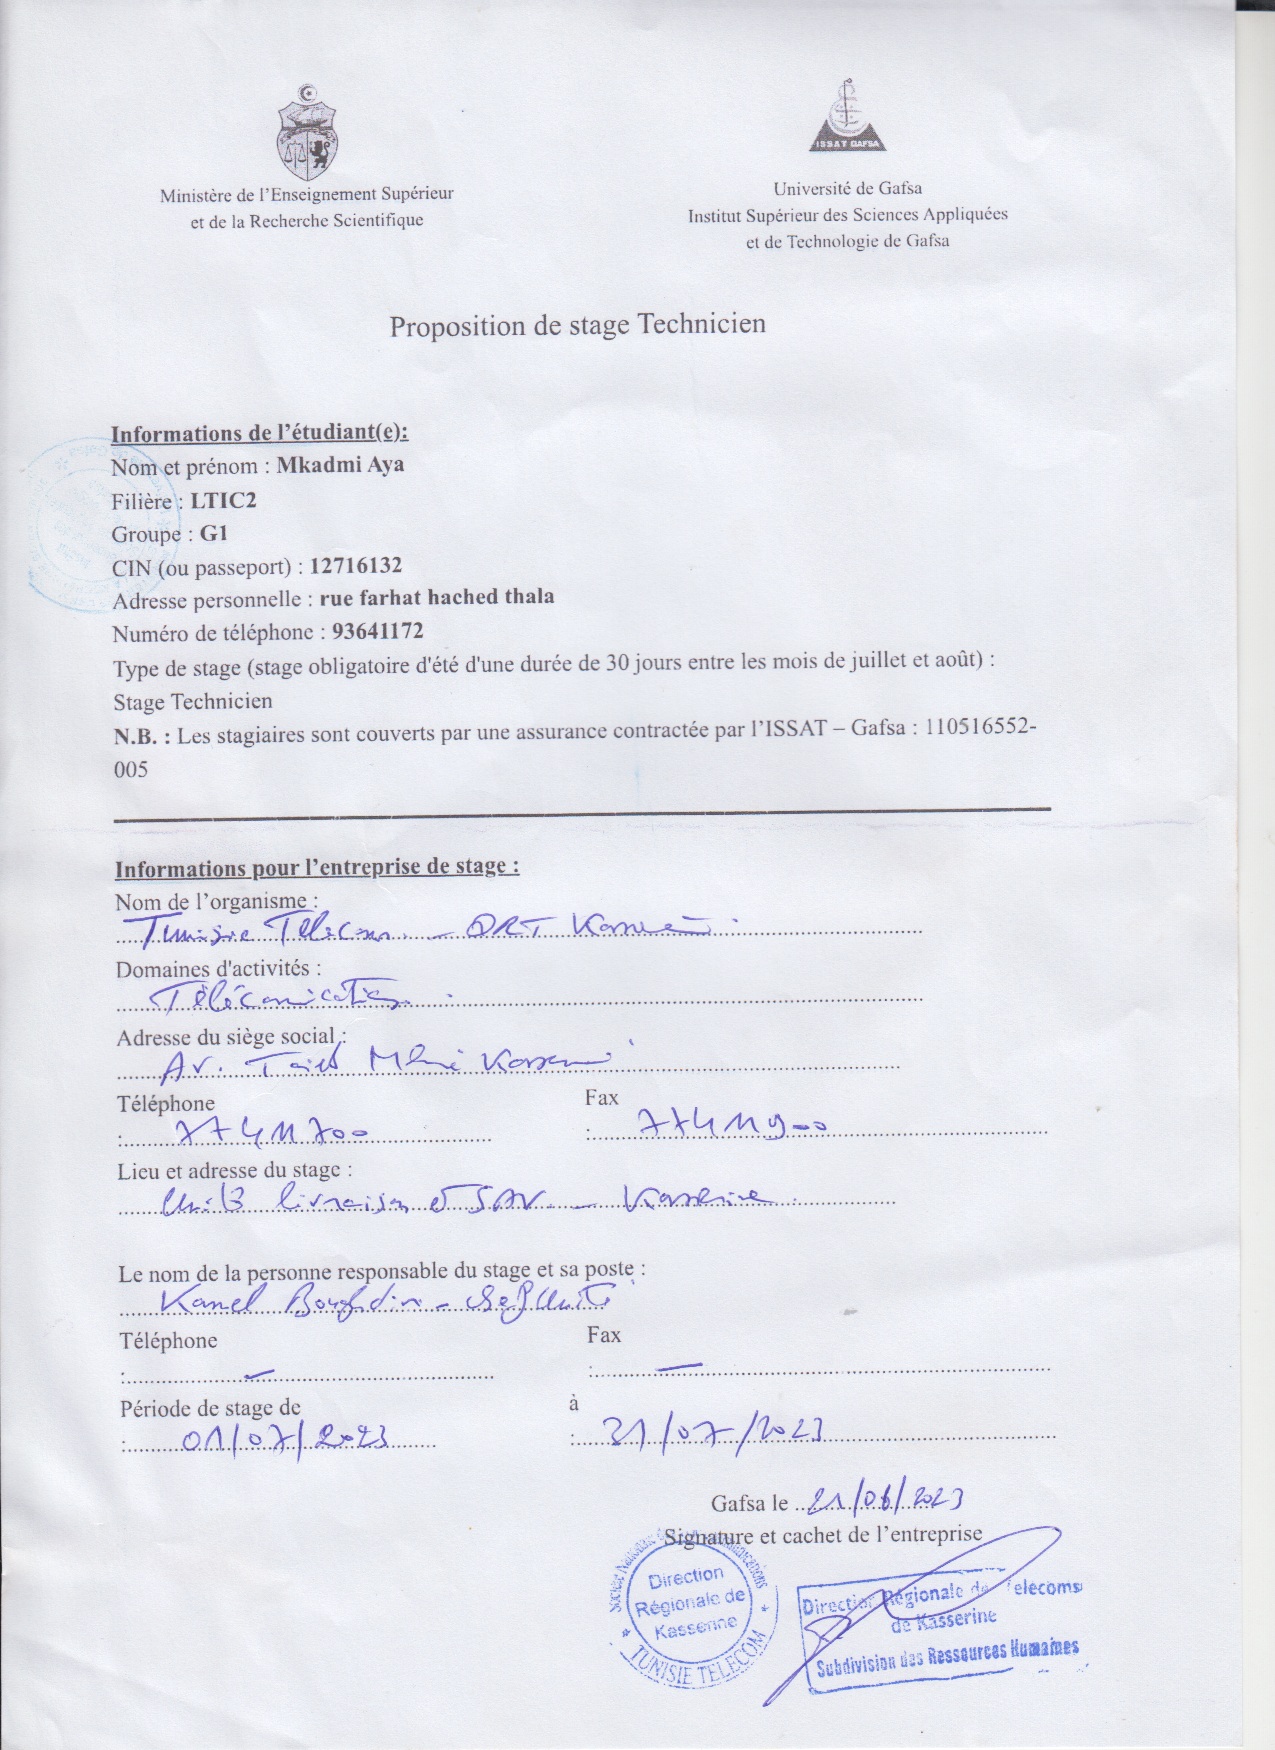 ISSAT GAFSA
Ministère de l'Enseignement Supérieur
et de la Recherche Scientifique
Université de Gafsa
Institut Supérieur des Sciences Appliquées
et de Technologie de Gafsa
Proposition de stage Technicien
Informations de l'étudiant(e):
Nom et prénom : Mkadmi Aya
Filière : LTIC2
Groupe : G1
CIN (ou passeport) : 12716132
Adresse personnelle : rue farhat hached thala
Numéro de téléphone : 93641172
Type de stage (stage obligatoire d'été d'une durée de 30 jours entre les mois de juillet et août) :
Stage Technicien
N.B. : Les stagiaires sont couverts par une assurance contractée par l'ISSAT – Gafsa : 110516552-
005
Informations pour l'entreprise de stage :
Nom de l'organisme :
Tunisie Télécom - DRT Kasserine
Domaines d'activités :
Adresse du siège social :
Av. Taieb Mhiri Kasserine
Téléphone Fax
: 77411700 : 77411900
Lieu et adresse du stage :
Unité livraison et SAV - Kasserine
Le nom de la personne responsable du stage et sa poste :
Kamel - chef Unité
Téléphone Fax
: - : -
Période de stage de à
: 01/07/2023 : 31/07/2023
Gafsa le 21/06/2023
Signature et cachet de l'entreprise
Direction
Régionale de
Kasserine
* TUNISIE TELECOM *
Direction Régionale de Telecoms
de Kasserine
Subdivision des Ressources Humaines